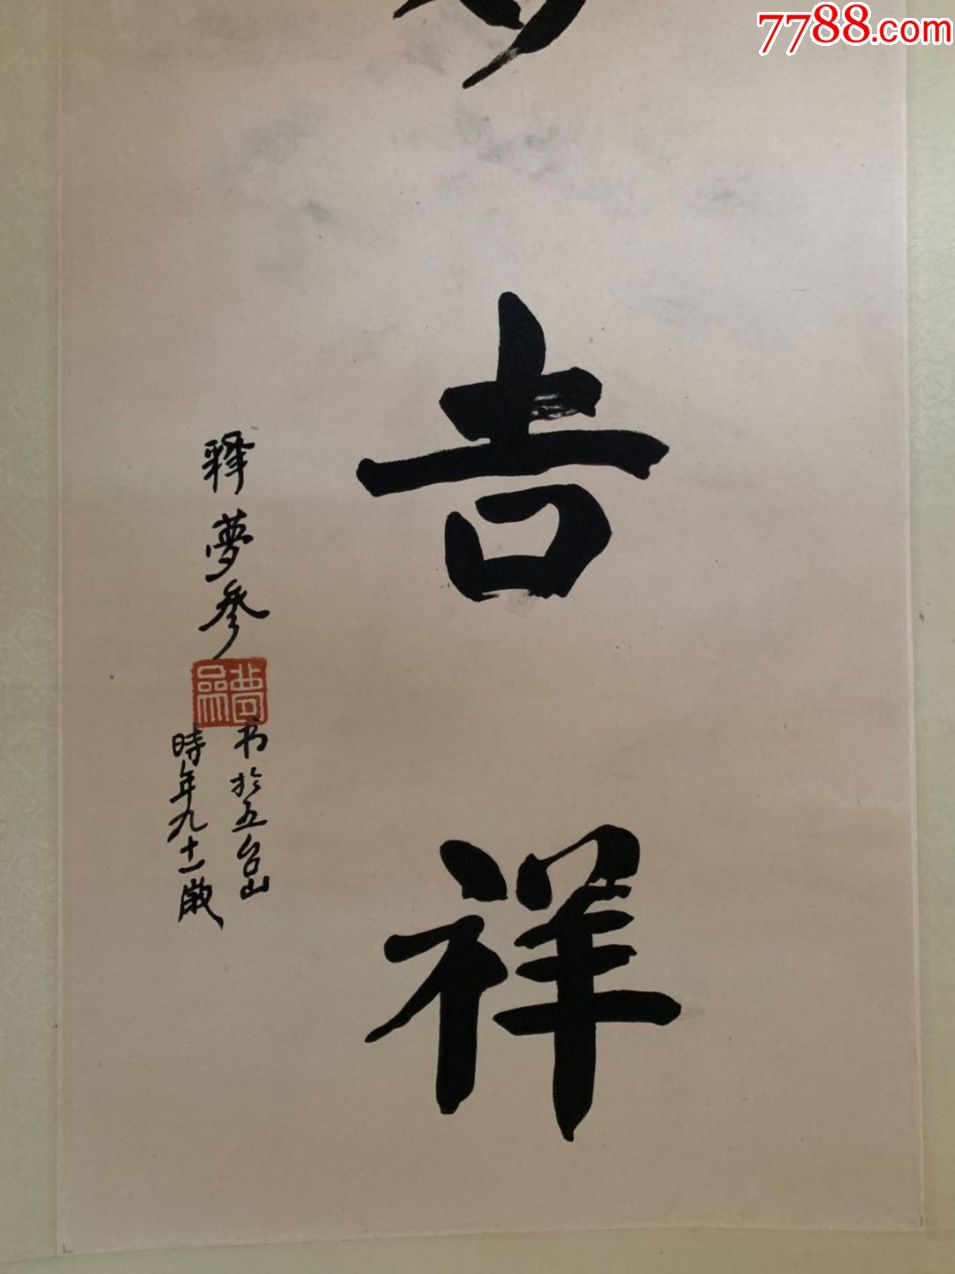 7788.com
吉
祥
释夢参
书於五台山
時年九十一歲